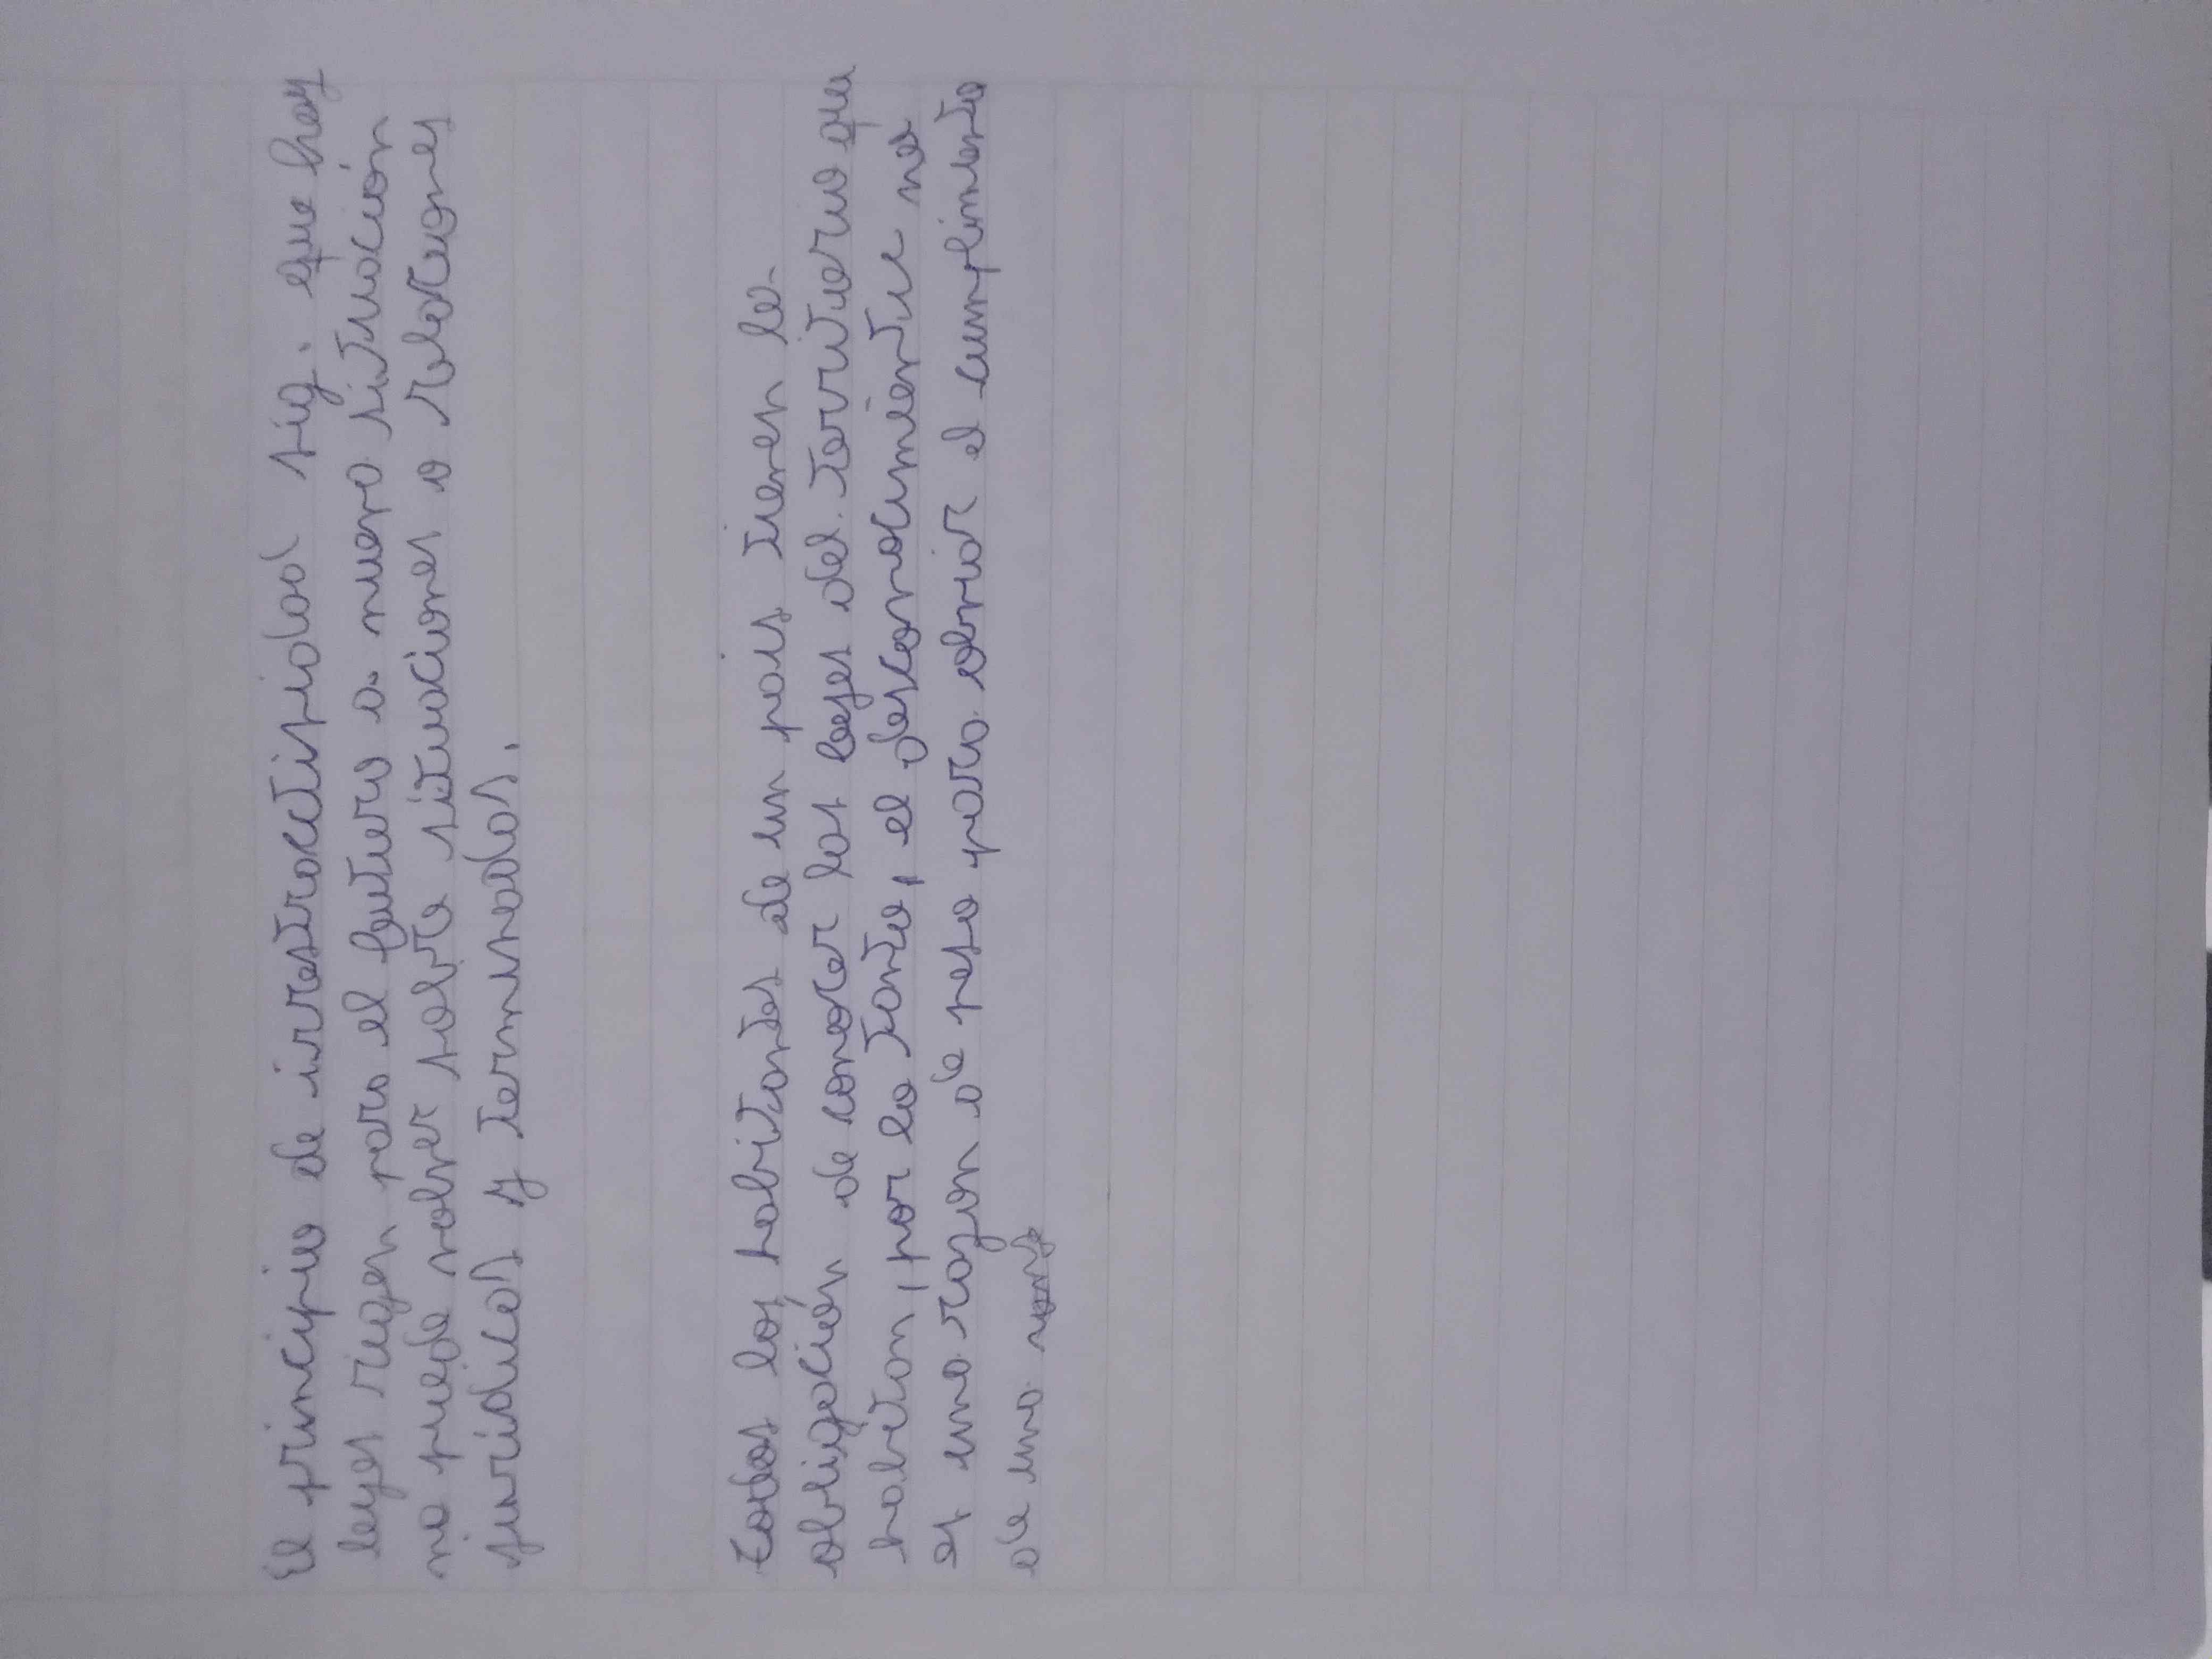 El principio de irrestroactividad sig. que hay
leyes rigen para el futuro a nuevo situación
no puede volver sobre situaciones o relaciones
jurídicas y terminadas.
Todos los habitantes de un pais tienen la
obligación de conocer las leyes del territorio que
habitan, por lo tanto, el desconocimiento no
es una razon de peso para obviar el cumplimiento
de una